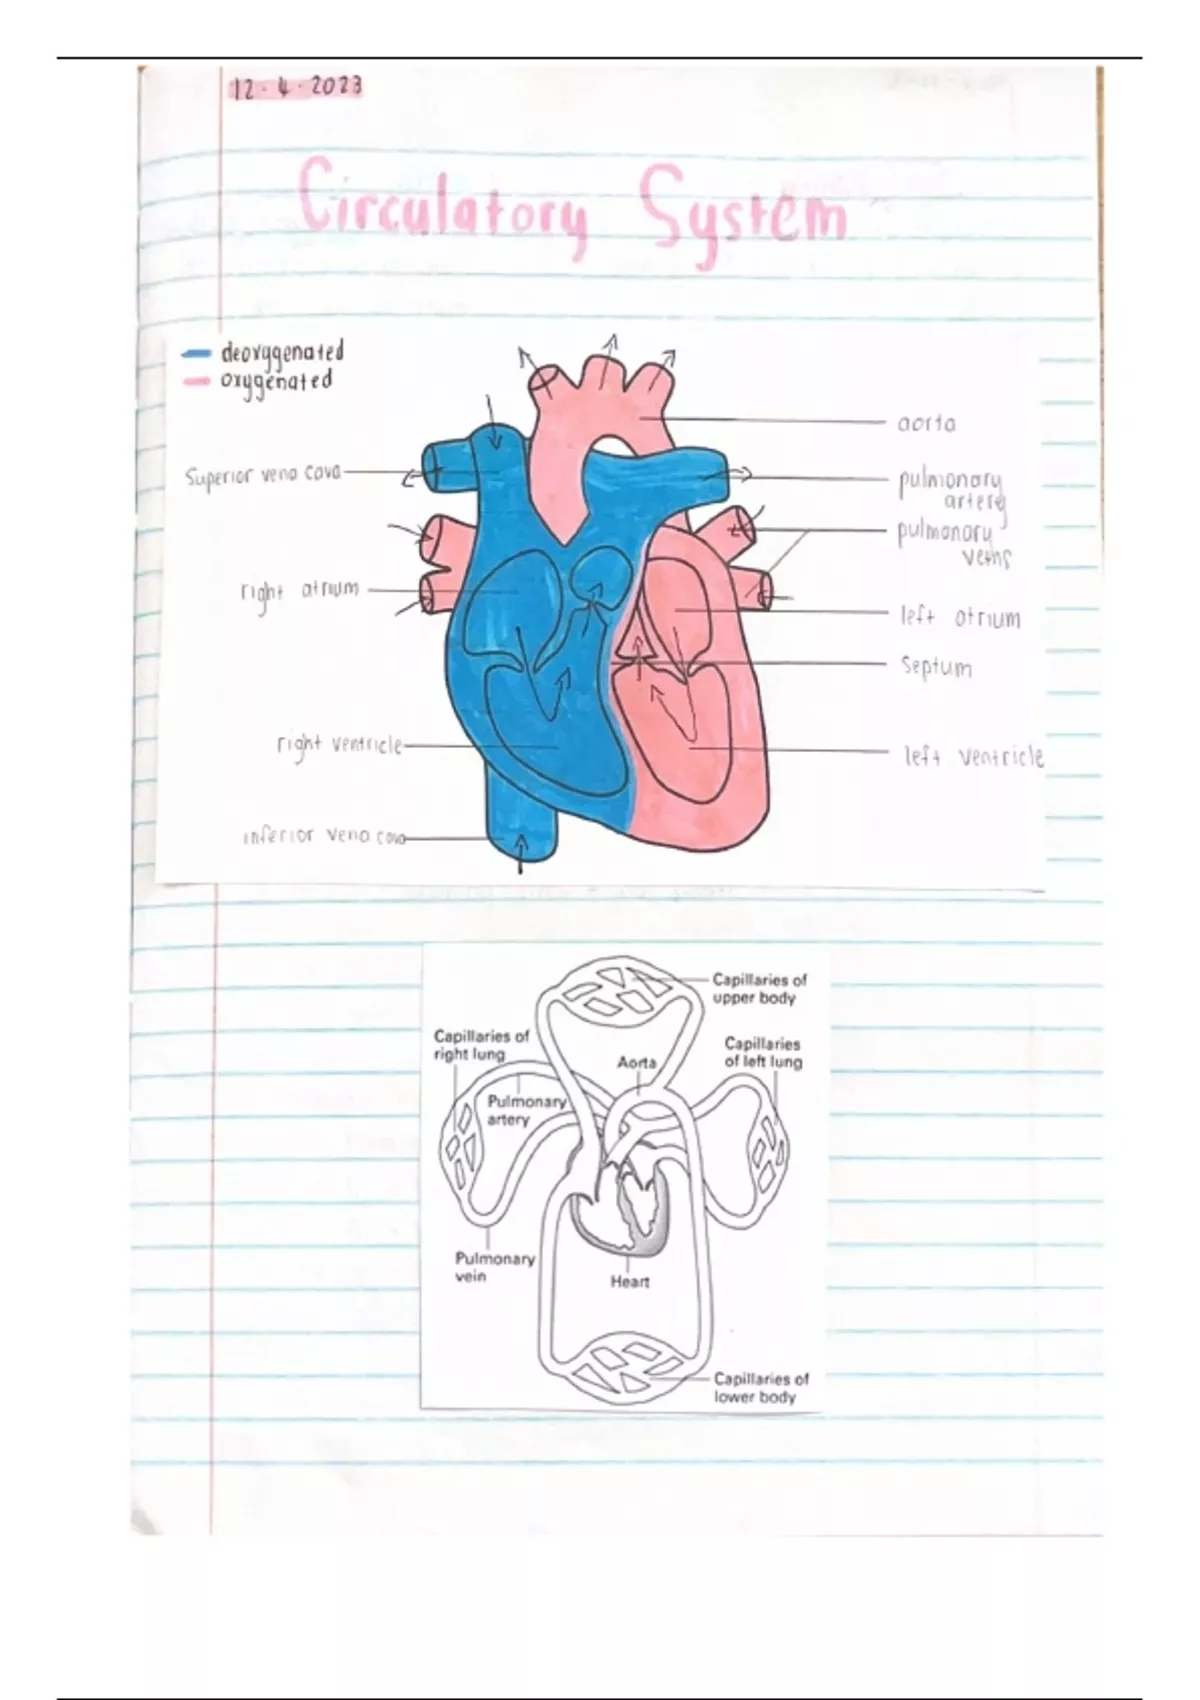 12 · 4 · 2023
Circulatory System
deoxygenated
oxygenated
superior vena cava
right atrium
right ventricle
inferior vena cava
aorta
pulmonary
artery
pulmonary
veins
left atrium
Septum
left ventricle
Capillaries of
upper body
Capillaries of
right lung
Aorta
Capillaries
of left lung
Pulmonary
artery
Pulmonary
vein
Heart
Capillaries of
lower body